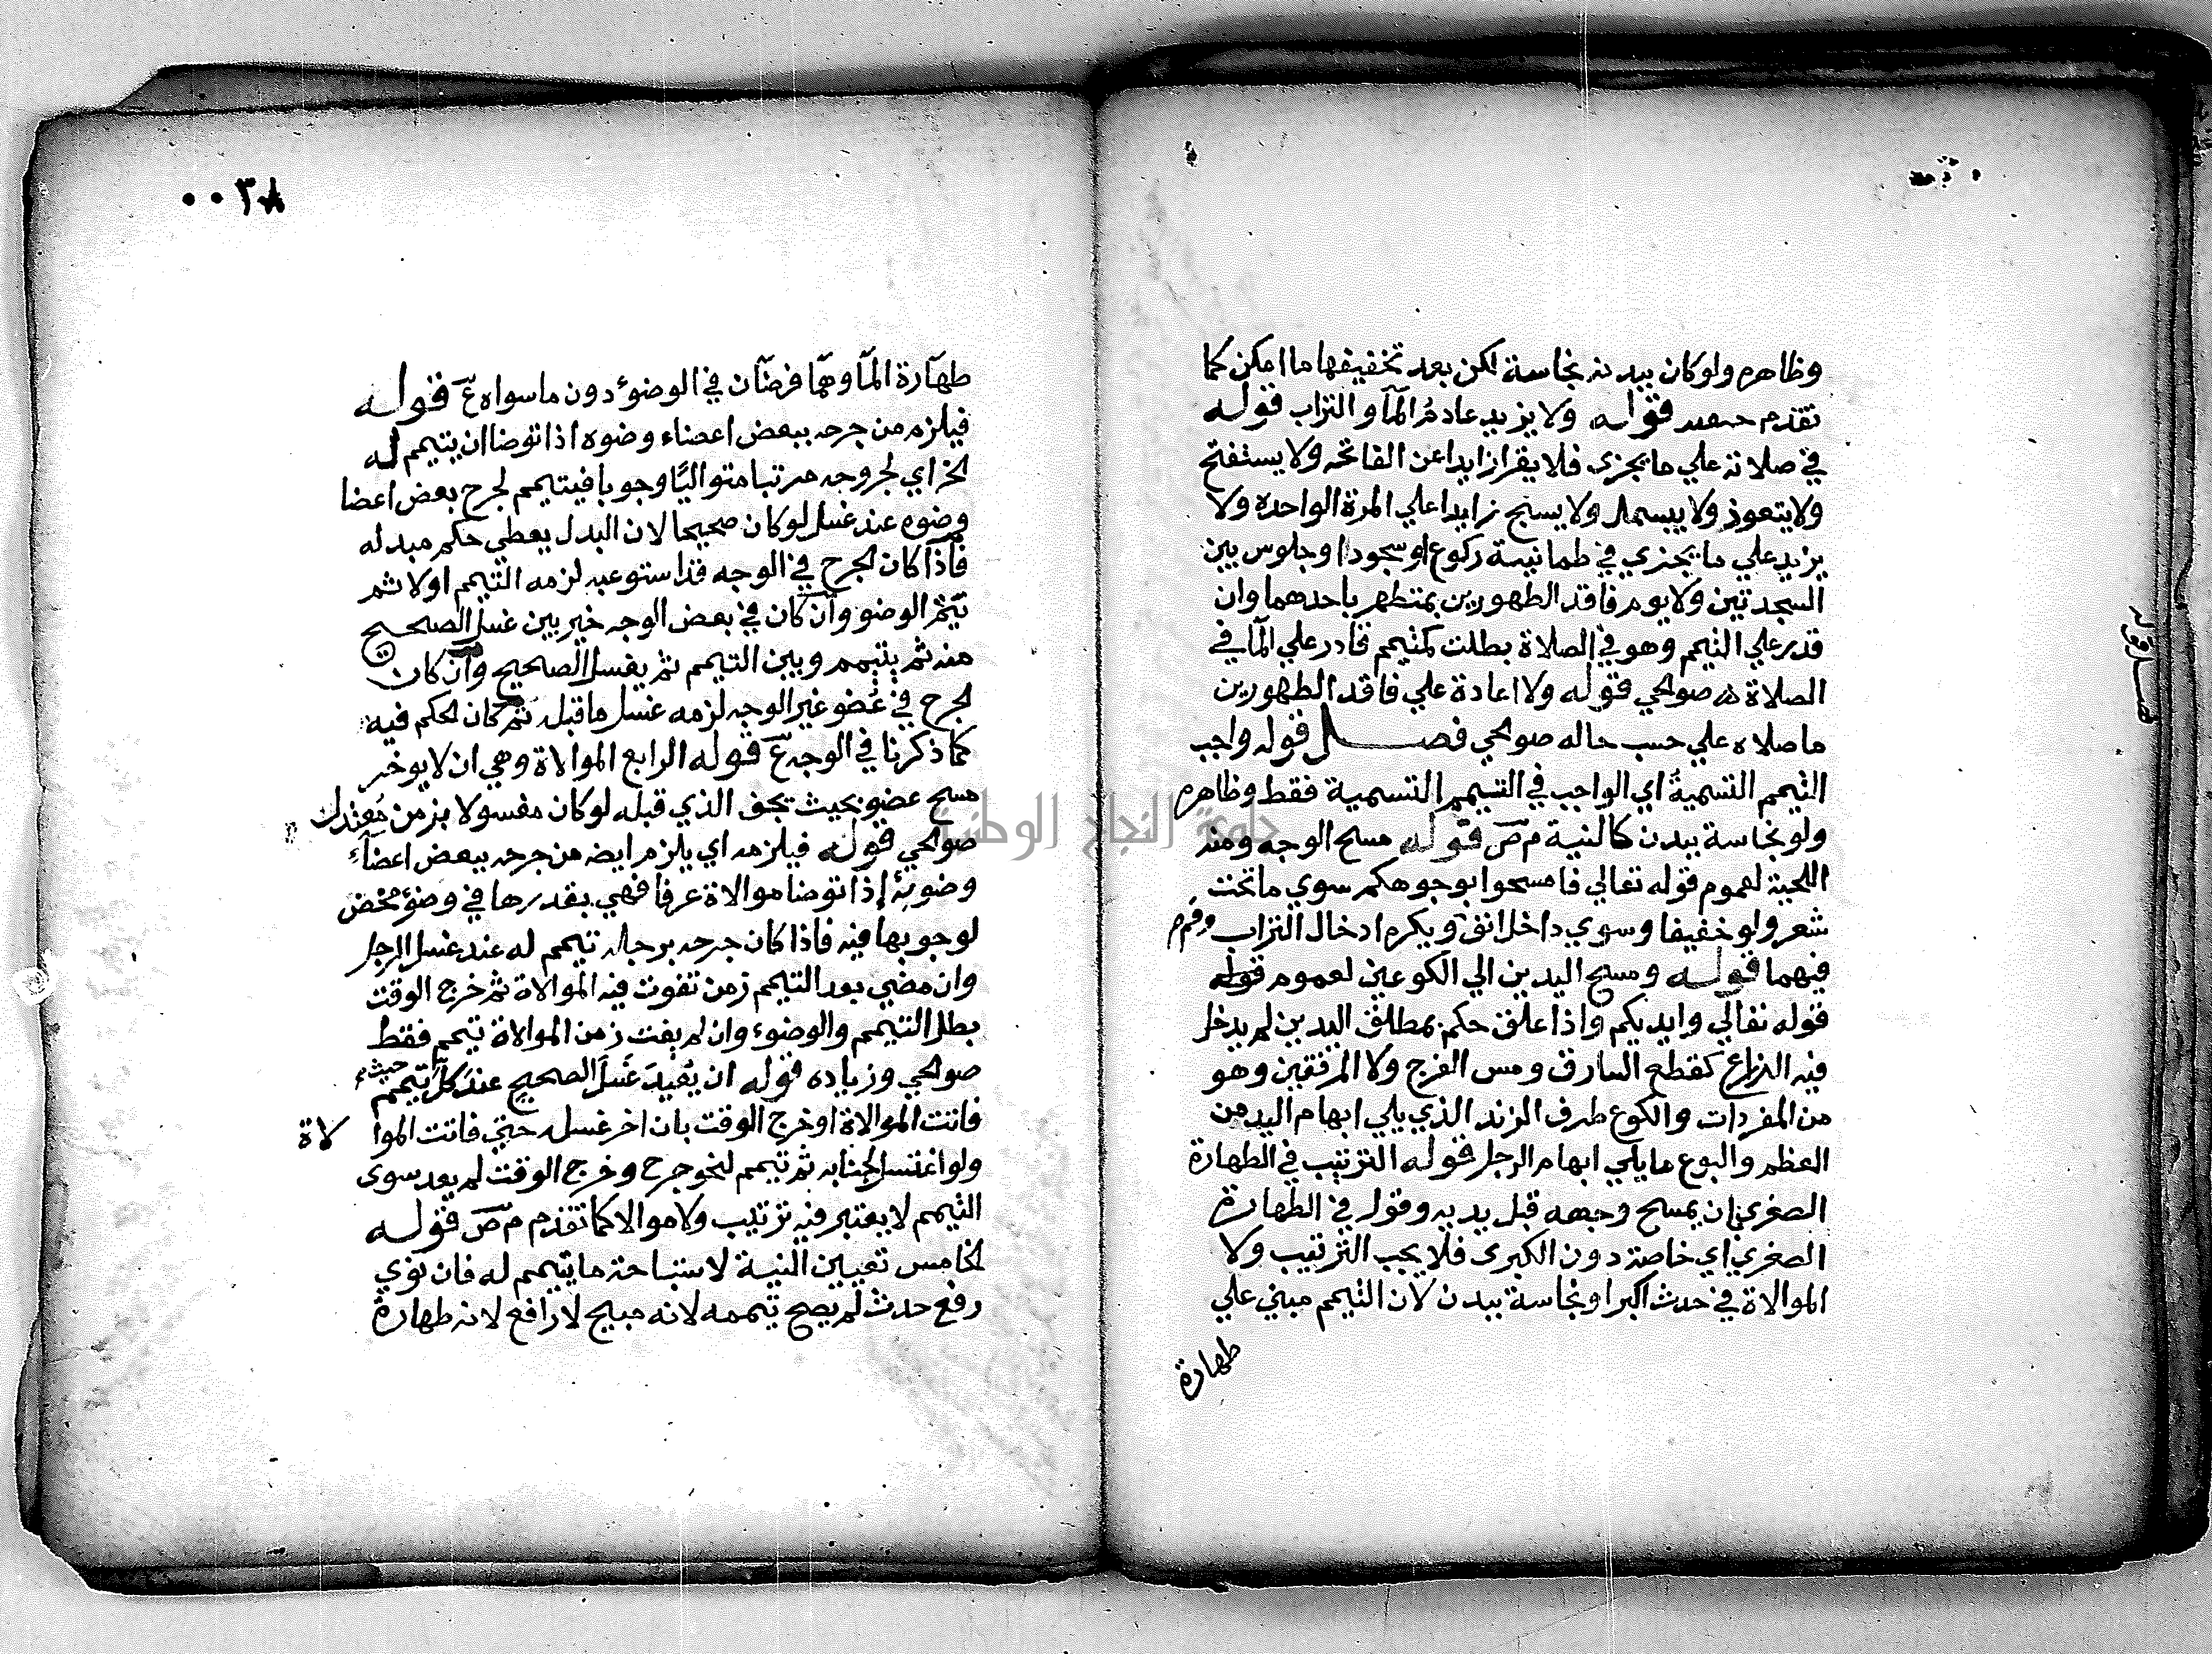 وظاهره ولو كان ببدنه نجاسة لكن بعد تخفيفها ما امكن كما
تقدم قوله ولا يزيد عادم المآ والتراب قوله
في صلاته علي ما يجزي فلا يقرا زايدا عن الفاتحه ولا يستفتح
ولا يتعوذ ولا يبسمل ولا يسبح زايدا علي المرة الواحده ولا
يزيد علي ما يجزي في طمانينة ركوع او سجود او جلوس بين
السجدتين ولا يوم فاقد الطهورين بمتطهر باحدهما وان
قدر علي التيمم وهو في الصلاة بطلت كمتيمم قادر علي المآ في
الصلاة صوالحي قوله ولا اعادة علي فاقد الطهورين
ما صلاه علي حسب حاله صوالحي فصل قوله واجب
التيمم التسمية اي الواجب في التيمم التسمية فقط وظاهره
ولو نجاسة ببدن كالنية م ص قوله مسح الوجه ومنه
اللحية لعموم قوله تعالي فامسحوا بوجوهكم سوي ما تحت
شعر ولو خفيفا وسوي داخل انف ويكره ادخال التراب وفم
فيهما قوله ومسح اليدين الي الكوعين لعموم قوله
قوله تعالي وايديكم واذا علق حكم بمطلق اليدين لم يدخل
فيه الذراع كقطع السارق ومس الفرج ولا المرفقين وهو
من المفردات والكوع طرف الزند الذي يلي ابهام اليد من
العظم والبوع ما يلي ابهام الرجل قوله الترتيب في الطهارة
الصغري بان يمسح وجهه قبل يديه وقوله في الطهارة
الصغري اي خاصة دون الكبري فلا يجب الترتيب ولا
الموالاة في حدث اكبر او نجاسة ببدن لان التيمم مبني علي
طهارة
٠٠٣٨
طهارة المآ وهما فرضان في الوضوء دون ما سواه ع قوله
فيلزم من جرحه ببعض اعضاء وضوه اذا توضا ان يتيمم له
الخ اي لجروحه مرتبا متواليًا وجوبا فيتيمم لجرح بعض اعضا
وضوه عند غسل لو كان صحيحا لان البدل يعطي حكم مبدله
فاذا كان الجرح في الوجه قد استوعبه لزمه التيمم اولا ثم
يتم الوضو وان كان في بعض الوجه خير بين غسل الصحيح
منه ثم يتيمم وبين التيمم ثم يغسل الصحيح وان كان
الجرح في عضو غير الوجه لزمه غسل ما قبله ثم كان الحكم فيه
كما ذكرنا في الوجه ع قوله الرابع الموالاة وهي ان لا يوخر
مسح عضو بحيث يجف الذي قبله لو كان مغسولا بزمن معتدل
صوالحي قوله فيلزمه اي يلزم ايضه من جرحه ببعض اعضآء
وضوئه إذا توضا موالاة عرفا فهي بقدرها في وضوء محض
لوجوبها فيه فاذا كان جرحه برجله تيمم له عند غسل الرجل
وان مضي بعد التيمم زمن تفوت فيه الموالاة ثم خرج الوقت
بطل التيمم والوضوء وان لم يفت زمن الموالاة تيمم فقط
صوالحي وزياده قوله ان يُعيدَ غَسلَ الصحيح عند كل تيمم حيث
فاتت الموالاة او خرج الوقت بان اخر غسله حتي فاتت الموا لاة
ولو اغتسل لجنابه ثم تيمم لنحو جرح وخرج الوقت لم يعد سوى
التيمم لا يعتبر فيه ترتيب ولا موالاة كما تقدم م ص قوله
الخامس تعيين النية لاستباحة ما يتيمم له فان نوي
رفع حدث لم يصح تيممه لانه مبيح لا رافع لانه طهارة
جامعة النجاح الوطنية